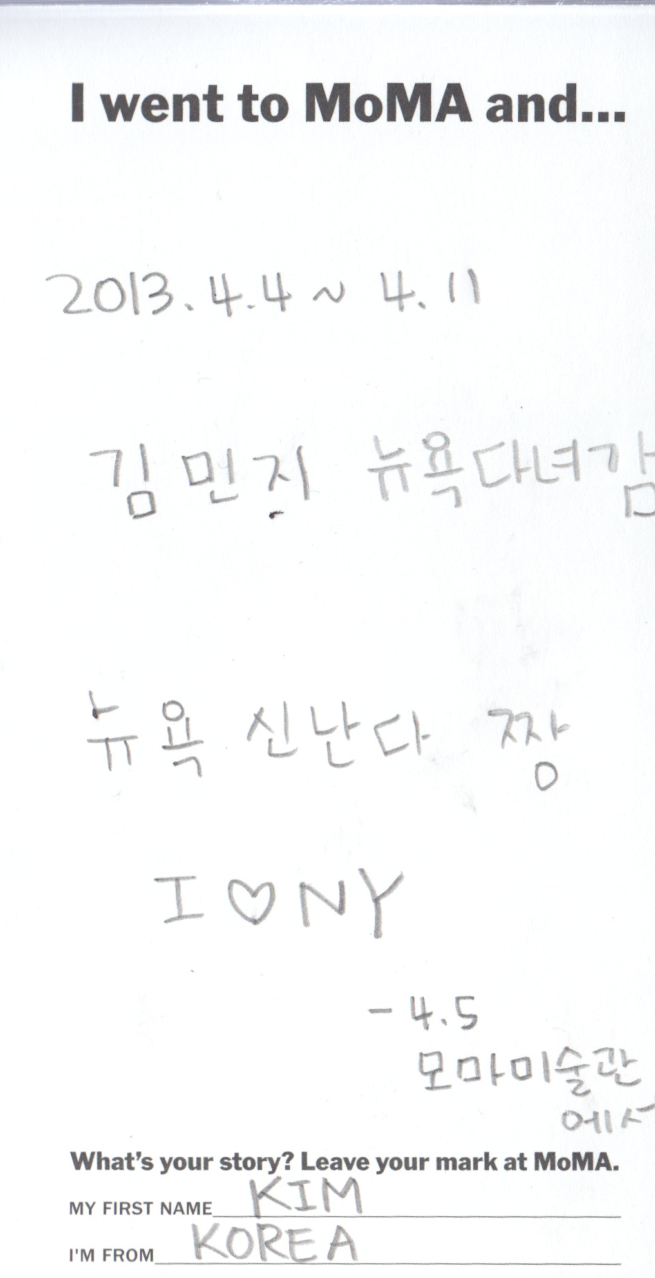 I went to MoMA and...
2013.4.4 ~ 4.11
김민지 뉴욕다녀감
뉴욕 신난다 짱
I ♡ NY
- 4.5
모마미술관
에서
What's your story? Leave your mark at MoMA.
MY FIRST NAME KIM
I'M FROM KOREA